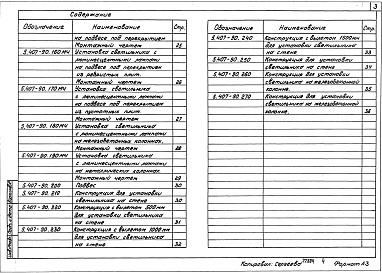 3
Содержание
Обозначение Наименование Стр.
на подвесе под перекрытием
Монтажный чертеж 25
5.407-90.160МЧ Установка светильника
с люминесцентными лампами
на подвесе под перекрытием
из ребристых плит.
Монтажный чертеж 26
5.407-90.170МЧ Установка светильника
с люминесцентными лампами
на подвесе под перекрытием
из пустотных плит.
Монтажный чертеж 27
5.407-90.180МЧ Установка светильника
с люминесцентными лампами
на железобетонных колоннах.
Монтажный чертеж 28
5.407-90.190МЧ Установка светильника
с люминесцентными лампами
на металлических колоннах.
Монтажный чертеж 29
5.407-90.200 Подвес 30
5.407-90.210 Конструкция для установки
светильника на стене 30
5.407-90.220 Конструкция с вылетом 500мм
для установки светильника
на стене 31
5.407-90.230 Конструкция с вылетом 1000мм
для установки светильника
на стене 32
Обозначение Наименование Стр.
5.407-90.240 Конструкция с вылетом 1500мм
для установки светильника
на стене 33
5.407-90.250 Конструкция для установки
светильника на стене 34
5.407-90.260 Конструкция для установки
светильника на железобетонной
колонне. 35
5.407-90.270 Конструкция для установки
светильника на железобетонной
колонне. 36
Копировал: Сергеева 4 Формат А3